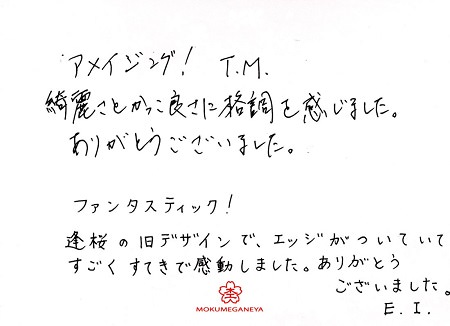 アメイジング! T.M.
綺麗さとかっこ良さに格調を感じました。
ありがとうございました。
ファンタスティック!
逢桜の旧デザインで、エッジがついていて
すごくすてきで感動しました。ありがとう
ございました。
E. I.
MOKUMEGANEYA